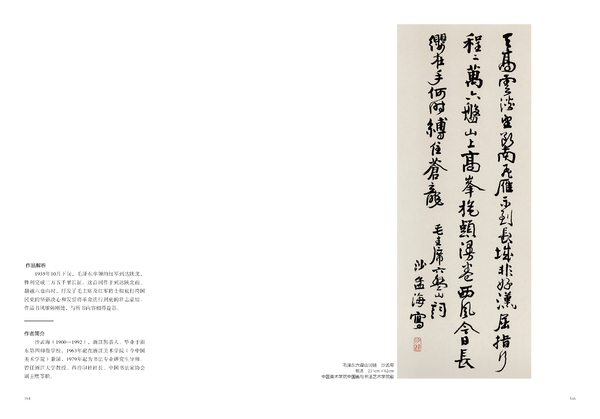 天高雲淡望斷南飛雁不到長城非好漢屈指行
程二萬六盤山上高峯旄頭漫卷西風今日長
纓在手何时縛住蒼龍
毛主席六盤山詞
沙孟海寫
作品解析
1935年10月下旬，毛泽东率领的红军到达陕北，
胜利完成二万五千里长征。这首词作于到达陕北前，
翻越六盘山时，抒发了毛主席及红军将士彻底打垮国
民党的坚强决心和发誓将革命进行到底的壮志豪情。
作品书风雄强刚健，与所书内容相得益彰。
作者简介
沙孟海（1900—1992），浙江鄞县人，毕业于浙
东第四师范学校。1963年起在浙江美术学院（今中国
美术学院）兼课，1979年起为书法专业研究生导师，
曾任浙江大学教授、西泠印社社长、中国书法家协会
副主席等职。
毛泽东六盘山词轴 沙孟海
中国美术学院中国画与书法艺术学院藏